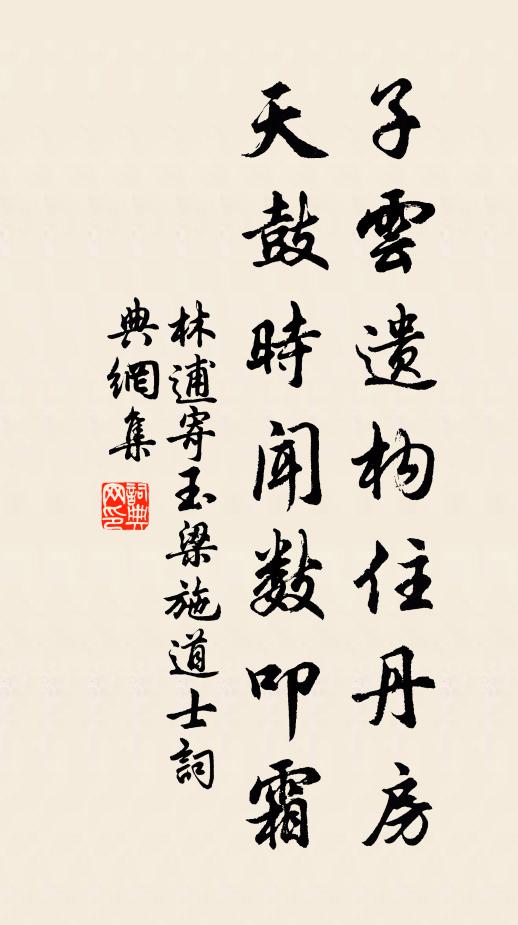 子雲遗构住丹房
天鼓時闻数叩霜
林逋寄玉梁施道士詞
典網集
詞典网印